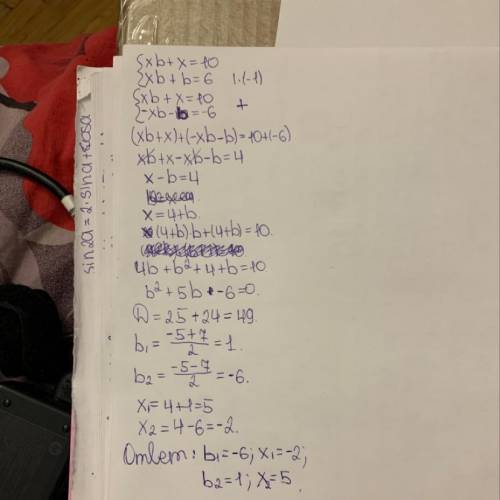 {xb+x=10
{xb+b=6 |·(-1)
{xb+x=10
{-xb-b=-6 +
(xb+x)+(-xb-b)=10+(-6)
xb+x-xb-b=4
x-b=4
x=4+b.
(4+b)b+(4+b)=10.
4b+b²+4+b=10
b²+5b-6=0.
D=25+24=49.
b₁=\frac{-5+7}{2}=1.
b₂=\frac{-5-7}{2}=-6.
x₁=4+1=5
x₂=4-6=-2.
Ответ: b₁=-6; x₁=-2;
b₂=1; x₂=5.
sin2a=2·sina+cosa